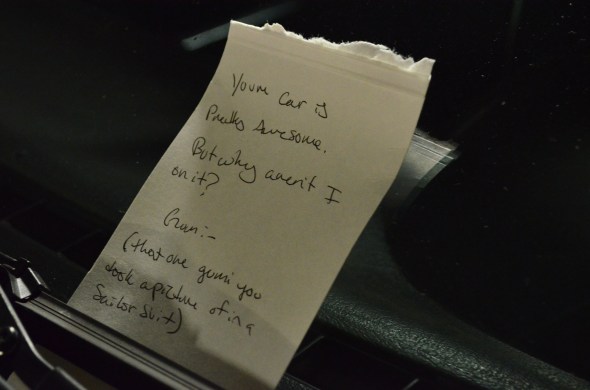 Youre Car is
Pretty Awesome.
But why arent I
on it?
(that one gumi you
took a picture of in a
Sailor Suit)